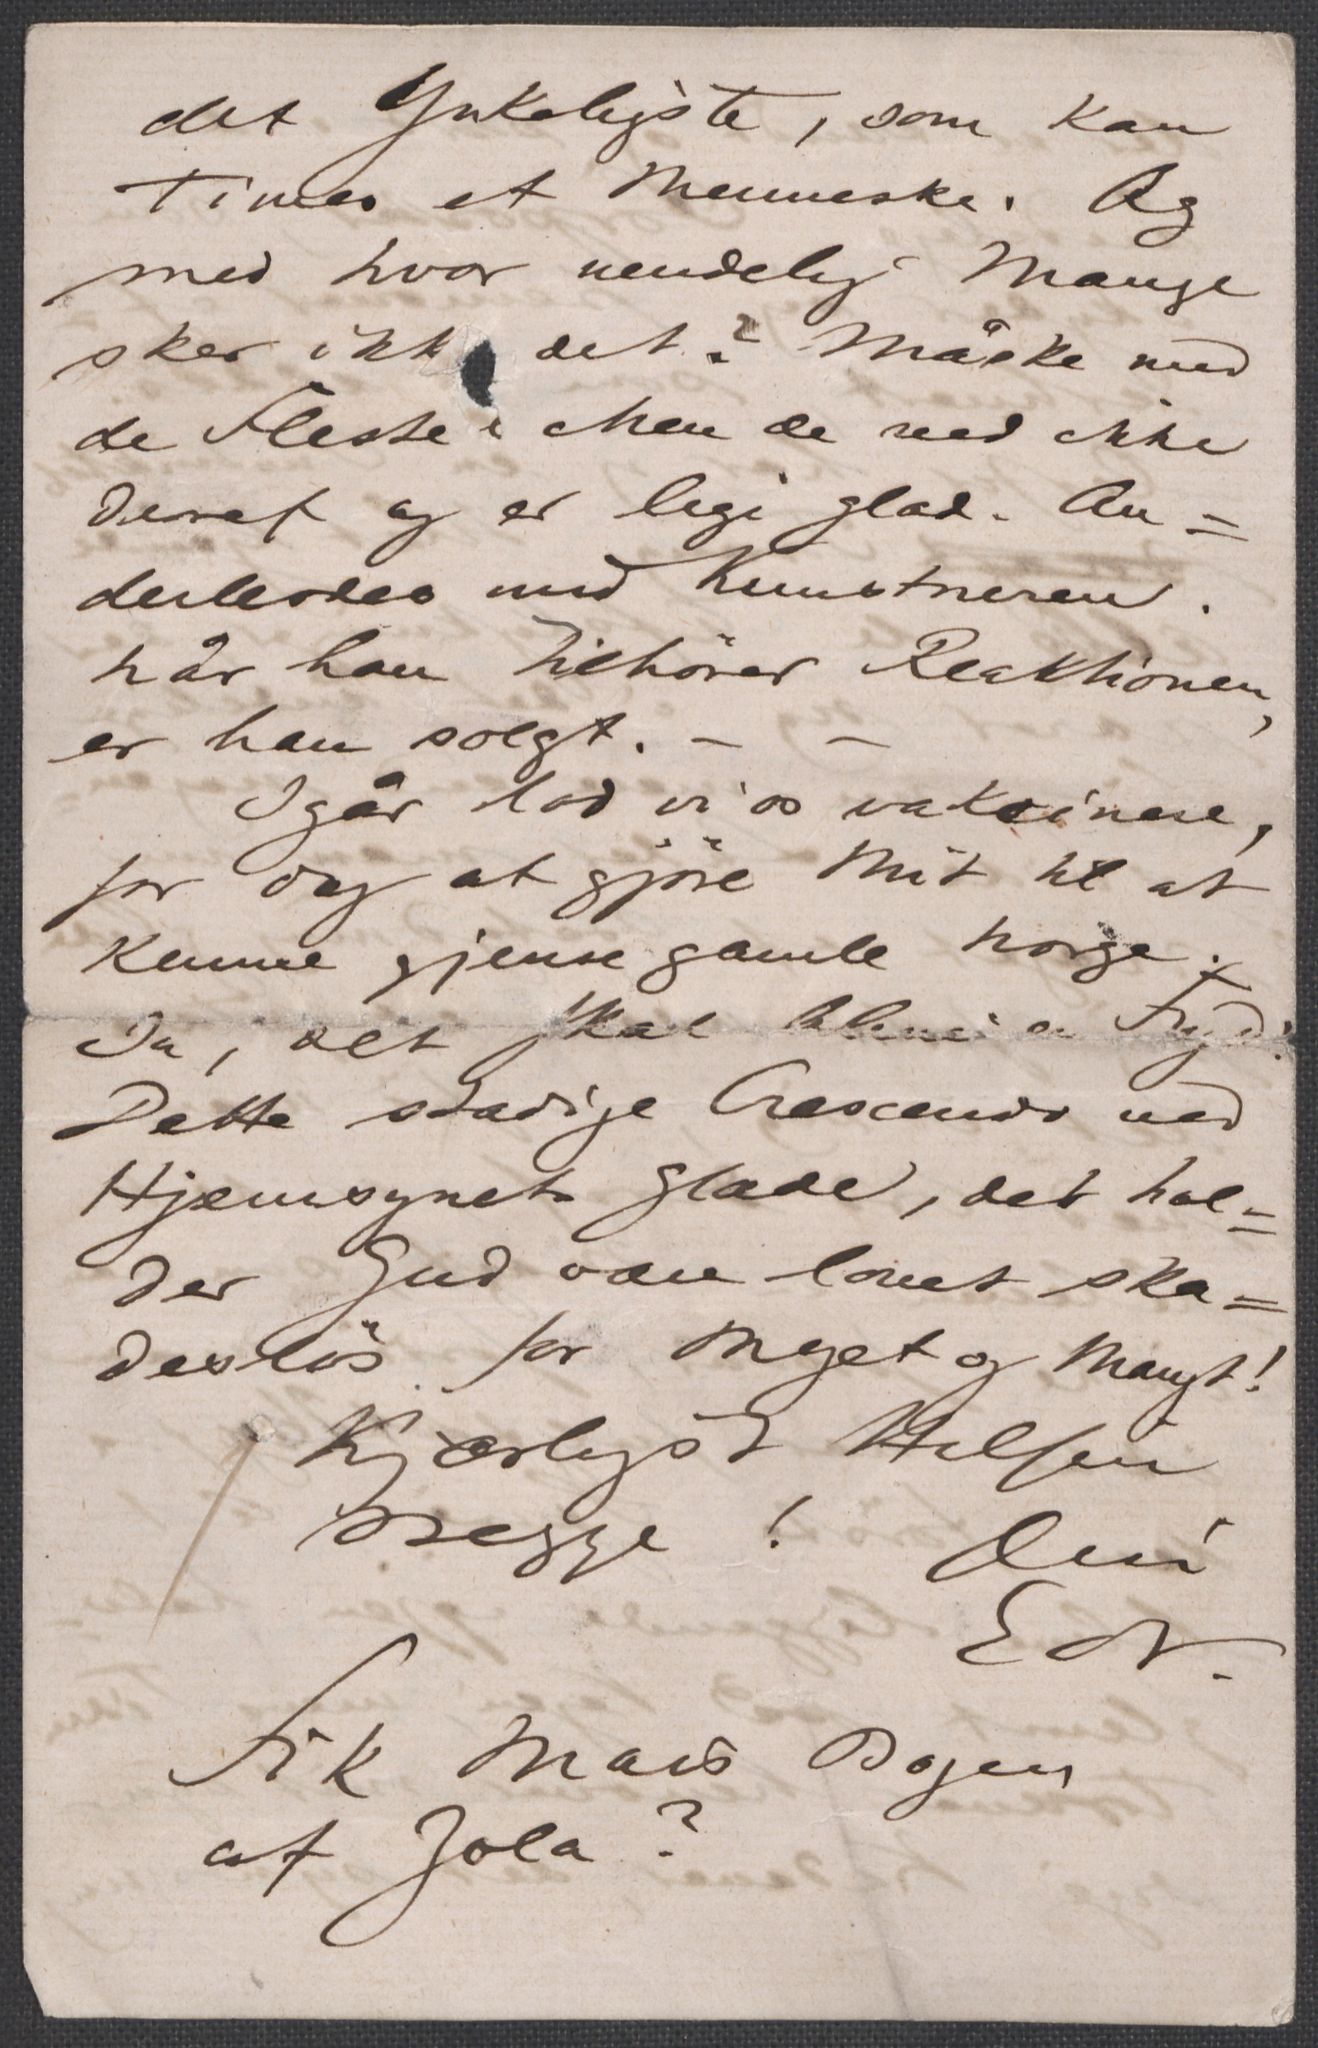 det Ynkeligste, som kan
times et Menneske. Og
med hvor uendelig Mange
sker ikke det? Måske med
de Fleste. Men de ved ikke
deraf og er lige glad. An=
derledes med Kunstneren.
når han tilhörer Reaktionen,
er han solgt. – –
Igår lod vi os vaksinere,
for dog at gjöre Mit til at
kunne gjense gamle Norge.
Ja, det skal blive en Fryd!
Dette stadige Crescendo ved
Hjemsynets Glæde, det hol=
der Gud være lovet ska=
deslös for Meget og Mangt!
Kjærligst Hilsen
Begge! Din
Edv.
Fik Marie Bogen
af Zola?